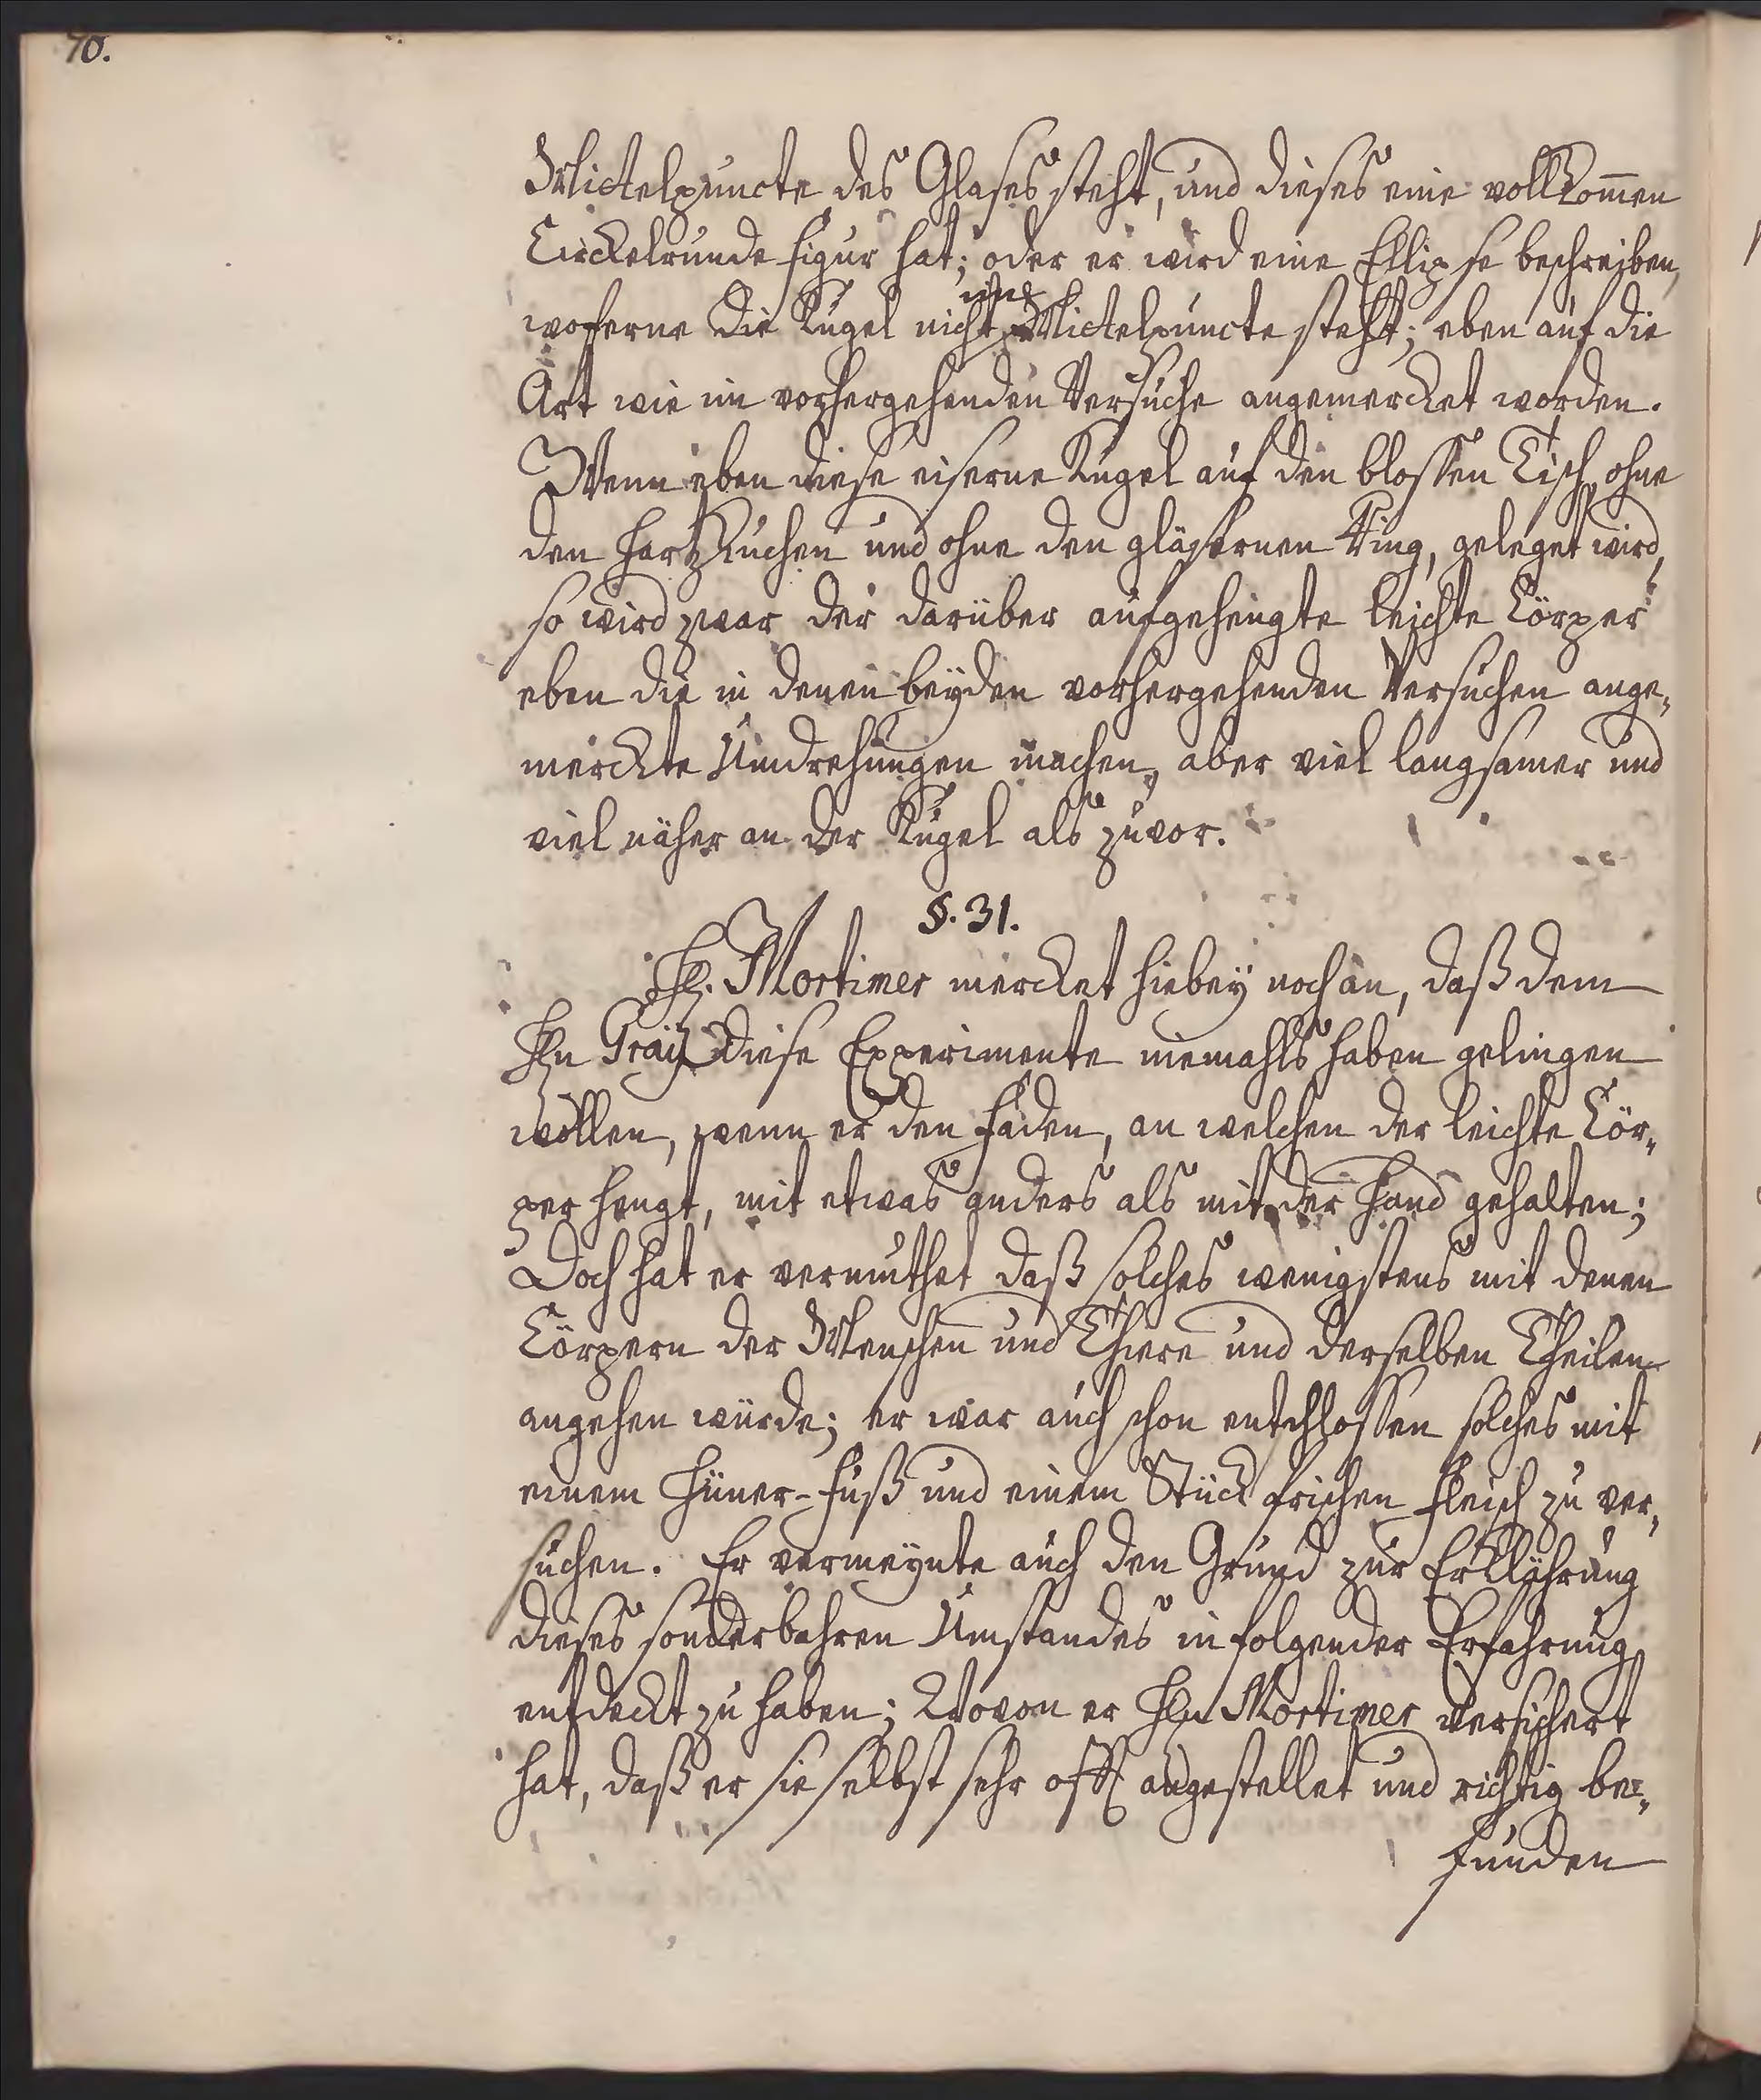 70.
Mittelpuncte des Glases steht, und dieses eine vollkom̄en
Circkelrunde figur hat; oder er wird eine Ellipse beschreiben,
im
woferne die Kugel nicht Mittelpuncte steht; eben auf die
Art wie im vorhergehenden Versuche angemercket worden.
Wenn eben diese eiserne Kugel auf den blossen Tisch, ohne
den Hartzkuchen und ohne den gläsernen Ring, geleget wird,
so wird zwar der darüber aufgehengte leichte Cörper
eben die in denen beyden vorhergehenden Versuchen ange-
merckte Umdrehungen machen, aber viel langsamer und
viel näher an der Kugel als zuvor.
§. 31.
H. Mortimer mercket hiebey noch an, daß dem
Hln Gray diese Experimente niemahls haben gelingen
wollen, wenn er den faden, an welchen der leichte Cör-
per hengt, mit etwas anders als mit der Hand gehalten;
Doch hat er vermuthet daß solches wenigstens mit denen
Cörpern der Menschen und Thiere und derselben Theilen
angehen würde; er war auch schon entschlossen solches mit
einem Hüner-fuß und einem Stück frischen fleisch zu ver-
suchen. Er vermeynte auch den Grund zur Erklährung
dieses sonderbahren Umstandes in folgender Erfahrung
entdeckt zu haben; Wovon er Hln Mortimer versichert
hat, daß er sie selbst sehr offt angestellet und richtig be-
funden